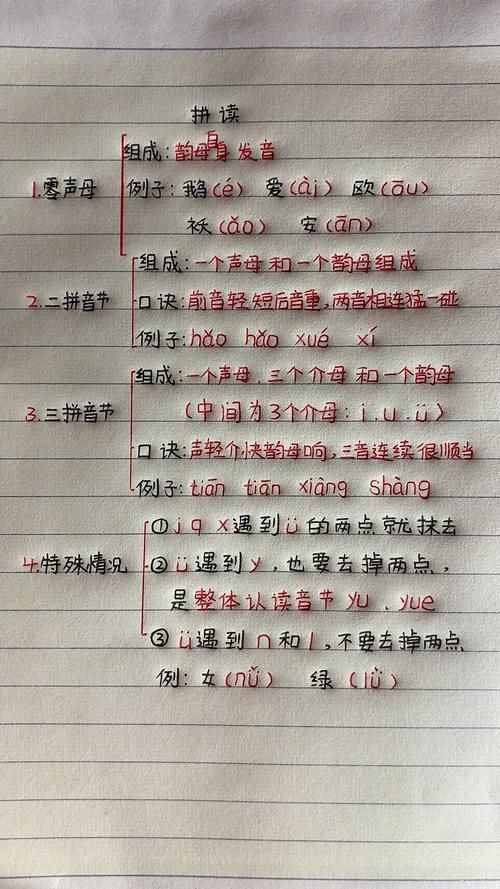 拼读
组成:韵母自身发音
1.零声母 例子:鹅(é) 爱(ài) 欧(ōu)
袄(ǎo) 安(ān)
组成:一个声母和一个韵母组成
2.二拼音节 口诀:前音轻短后音重,两音相连猛一碰
例子:hǎo hǎo xué xí
组成:一个声母、三个介母和一个韵母
3.三拼音节 (中间为3个介母:i.u.ü)
口诀:声轻介快韵母响,三音连续很顺当
例子:tiān tiān xiàng shàng
①j q x遇到ü的两点就抹去
4.特殊情况 ②ü遇到y,也要去掉两点,
是整体认读音节yu、yue
③ü遇到n和l,不要去掉两点
例:女(nǚ) 绿(lǜ)